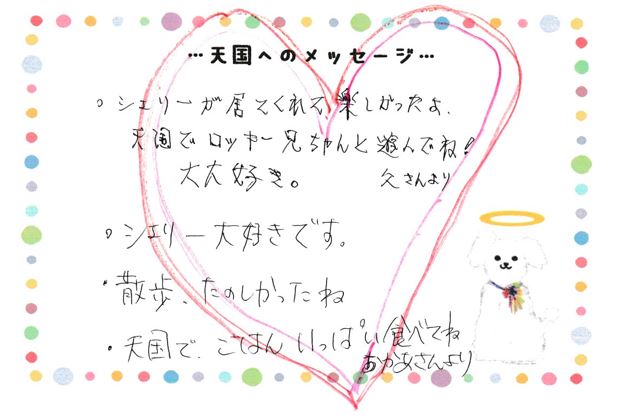 …天国へのメッセージ…
。シェリーが居てくれて、楽しかったよ、
天国でロッキー兄ちゃんと遊んでね！
大大好き。 父さんより
。シェリー大好きです。
・散歩、たのしかったね
・天国で、ごはんいっぱい食べてね
おかあさんより